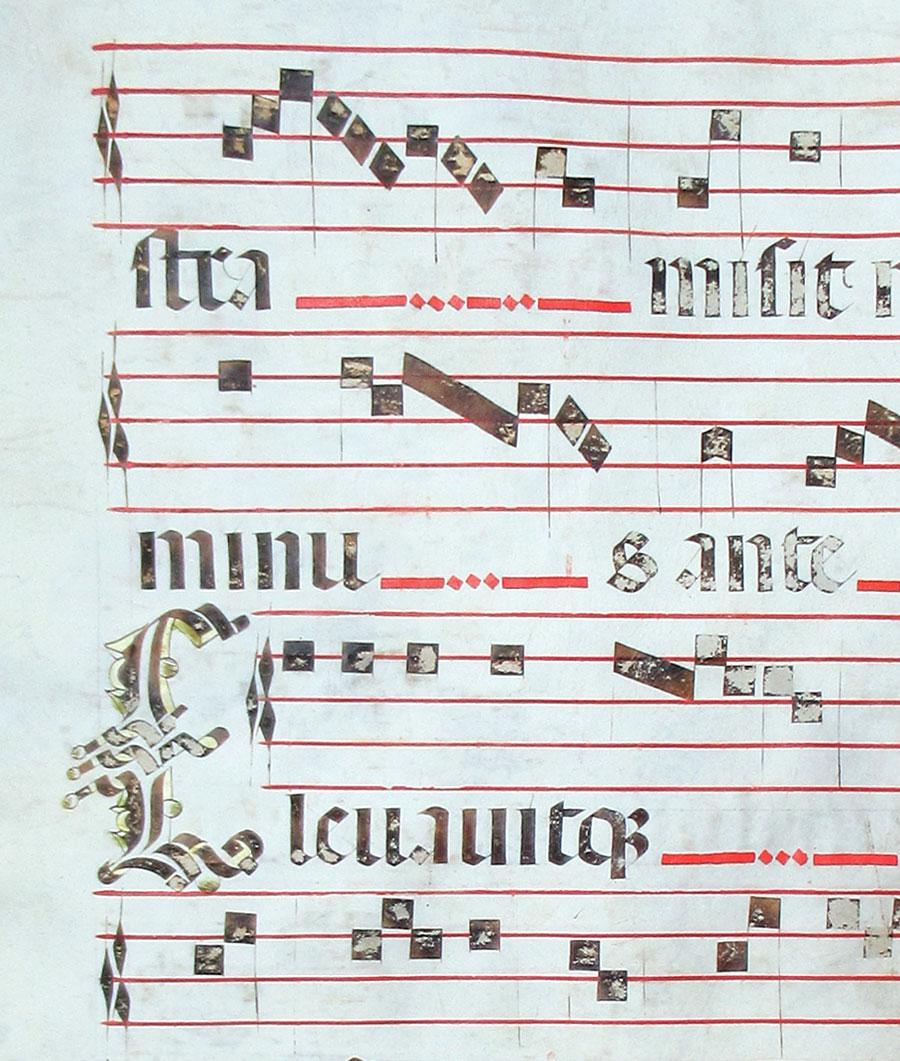 stra misit
minu s ante
Eleuauitqȝ